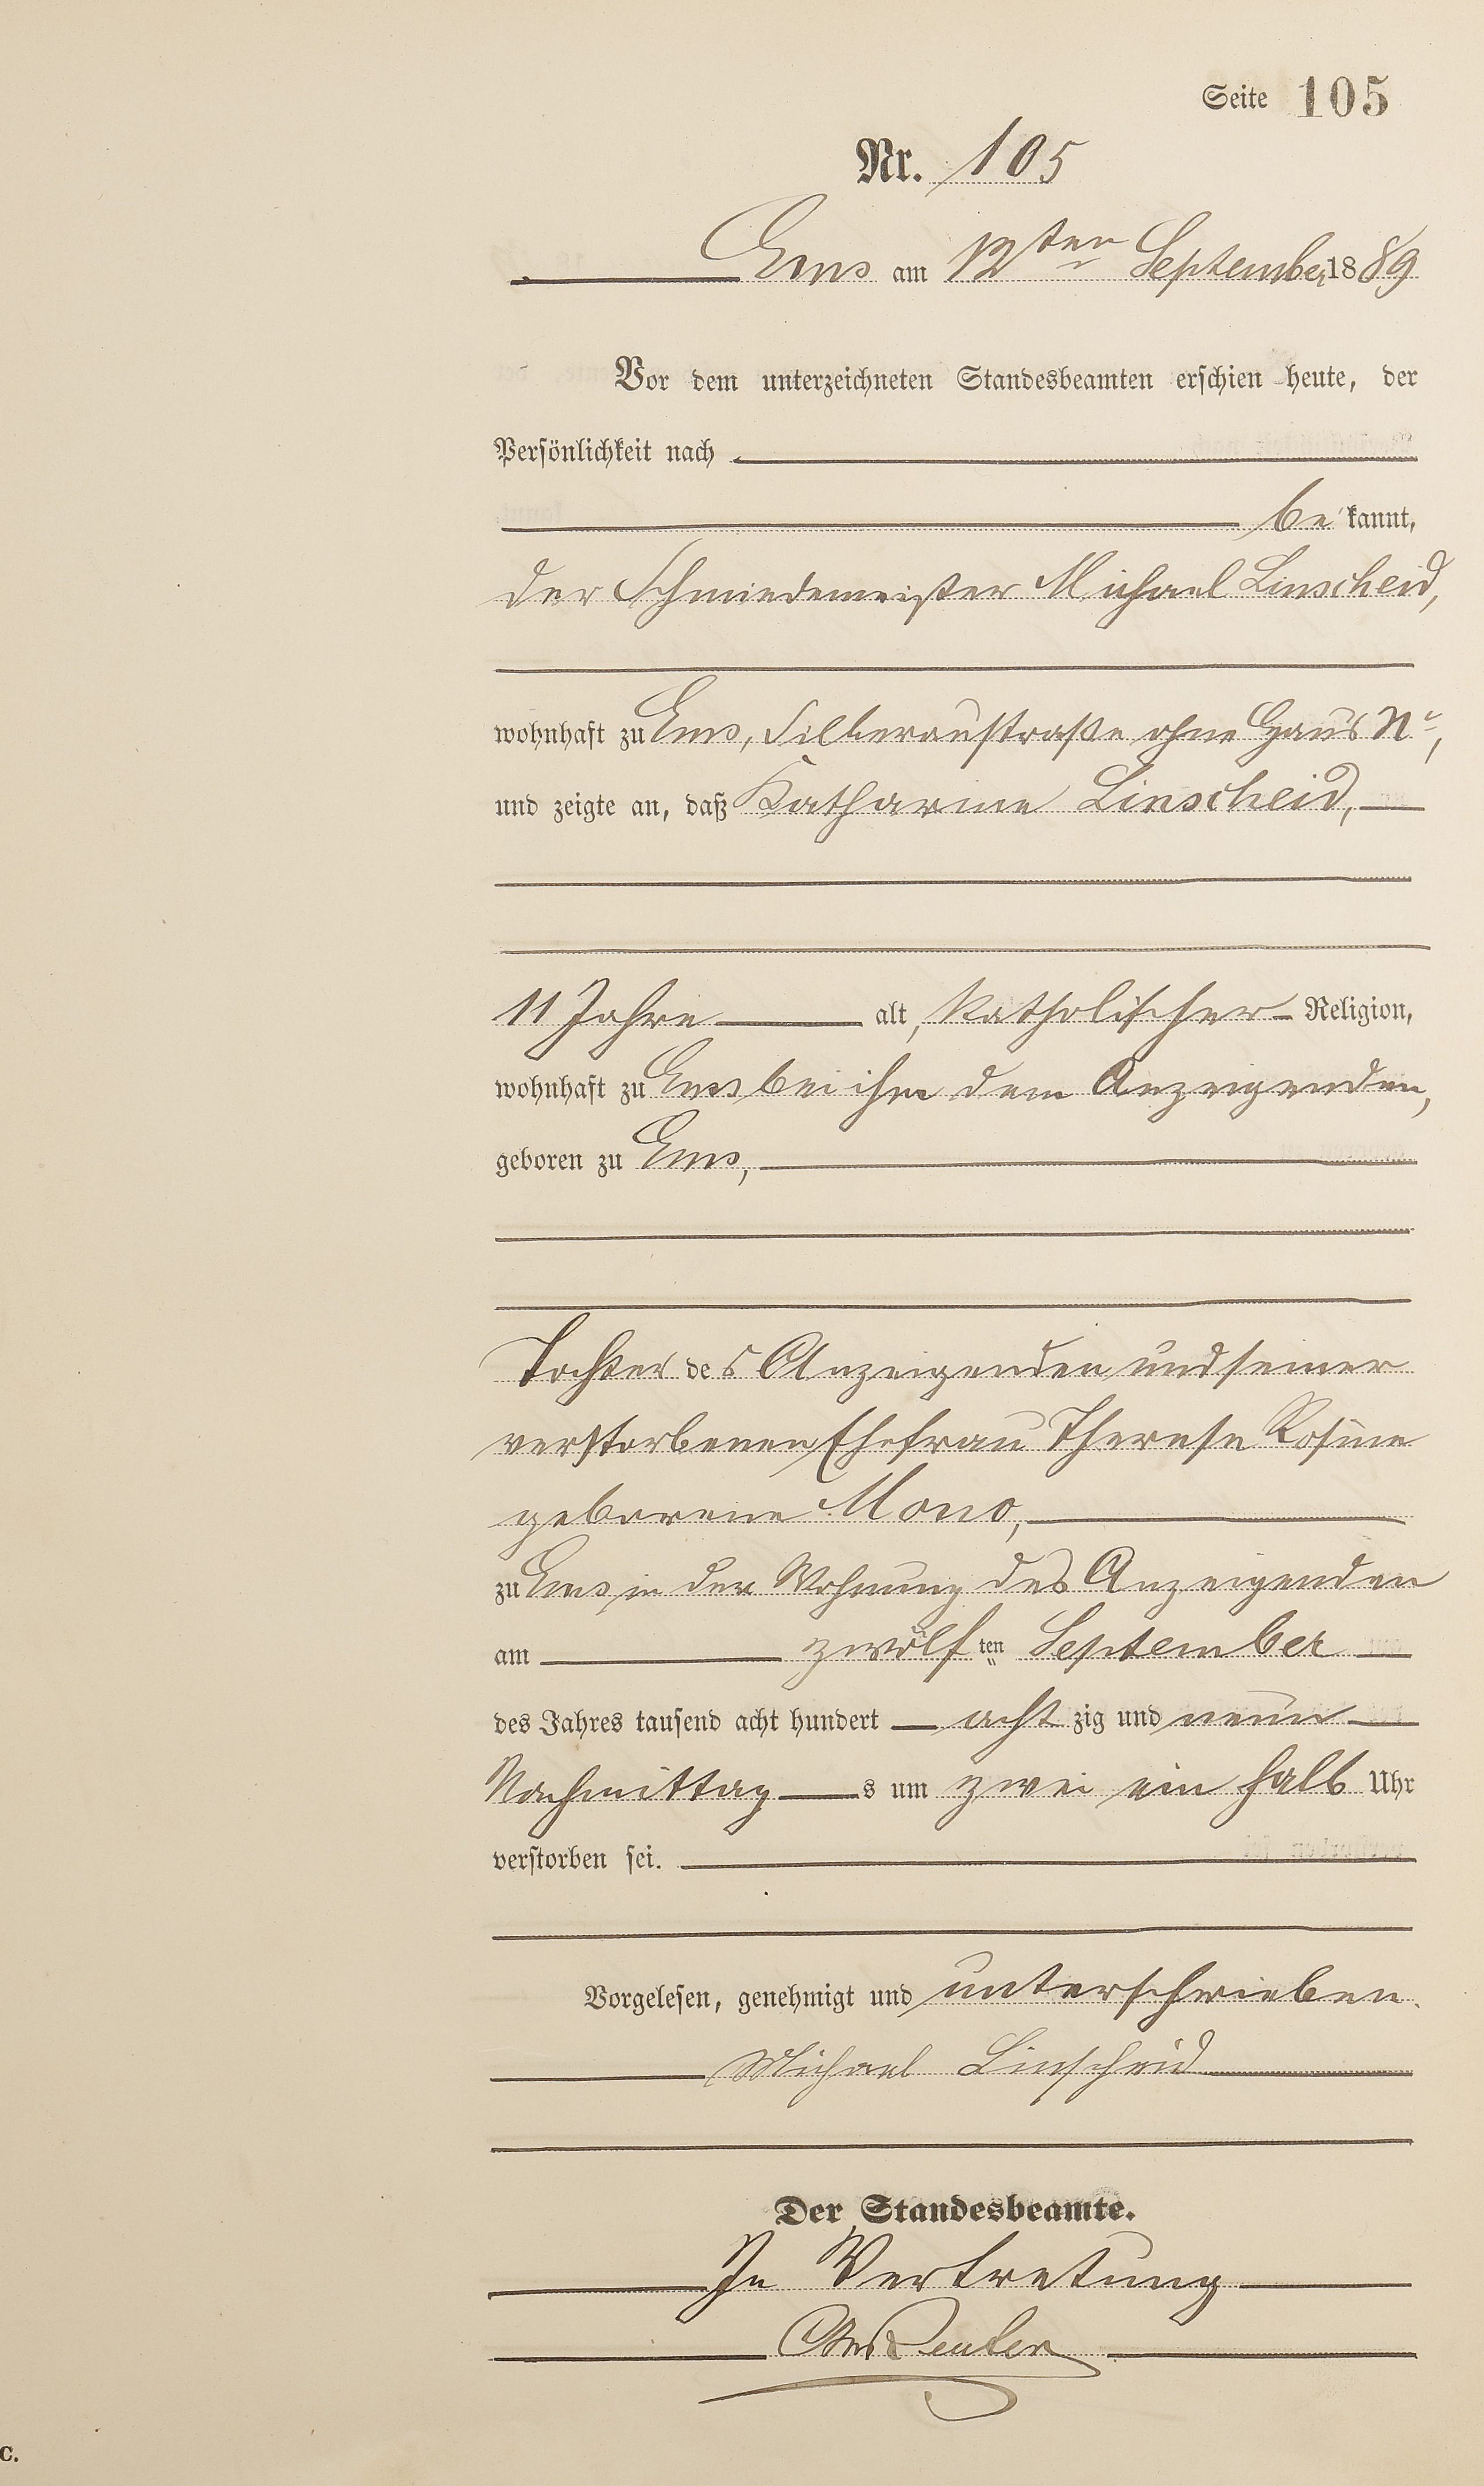 Seite 105
Nr. 105
Ems am 12ten September 1889
Vor dem unterzeichneten Standesbeamten erschien heute, der
Persönlichkeit nach
be kannt,
der Schmiedemeister Michael Linscheid,
wohnhaft zu Ems, Silberaustraße ohne Haus No,
und zeigte an, daß Katharine Linscheid,
11 Jahre alt, katholischer Religion,
wohnhaft zu Ems bei ihm dem Anzeigenden,
geboren zu Ems,
Tochter des Anzeigenden und seiner
verstorbenen Ehefrau Therese Rosine
geborene Mono,
zu Ems in der Wohnung des Anzeigenden
am zwölf ten September
des Jahres tausend acht hundert acht zig und neun
Nachmittag s um zwei ein halb Uhr
verstorben sei.
Vorgelesen, genehmigt und unterschrieben.
Michael Linscheid
Der Standesbeamte.
In Vertretung
Reuter
C.